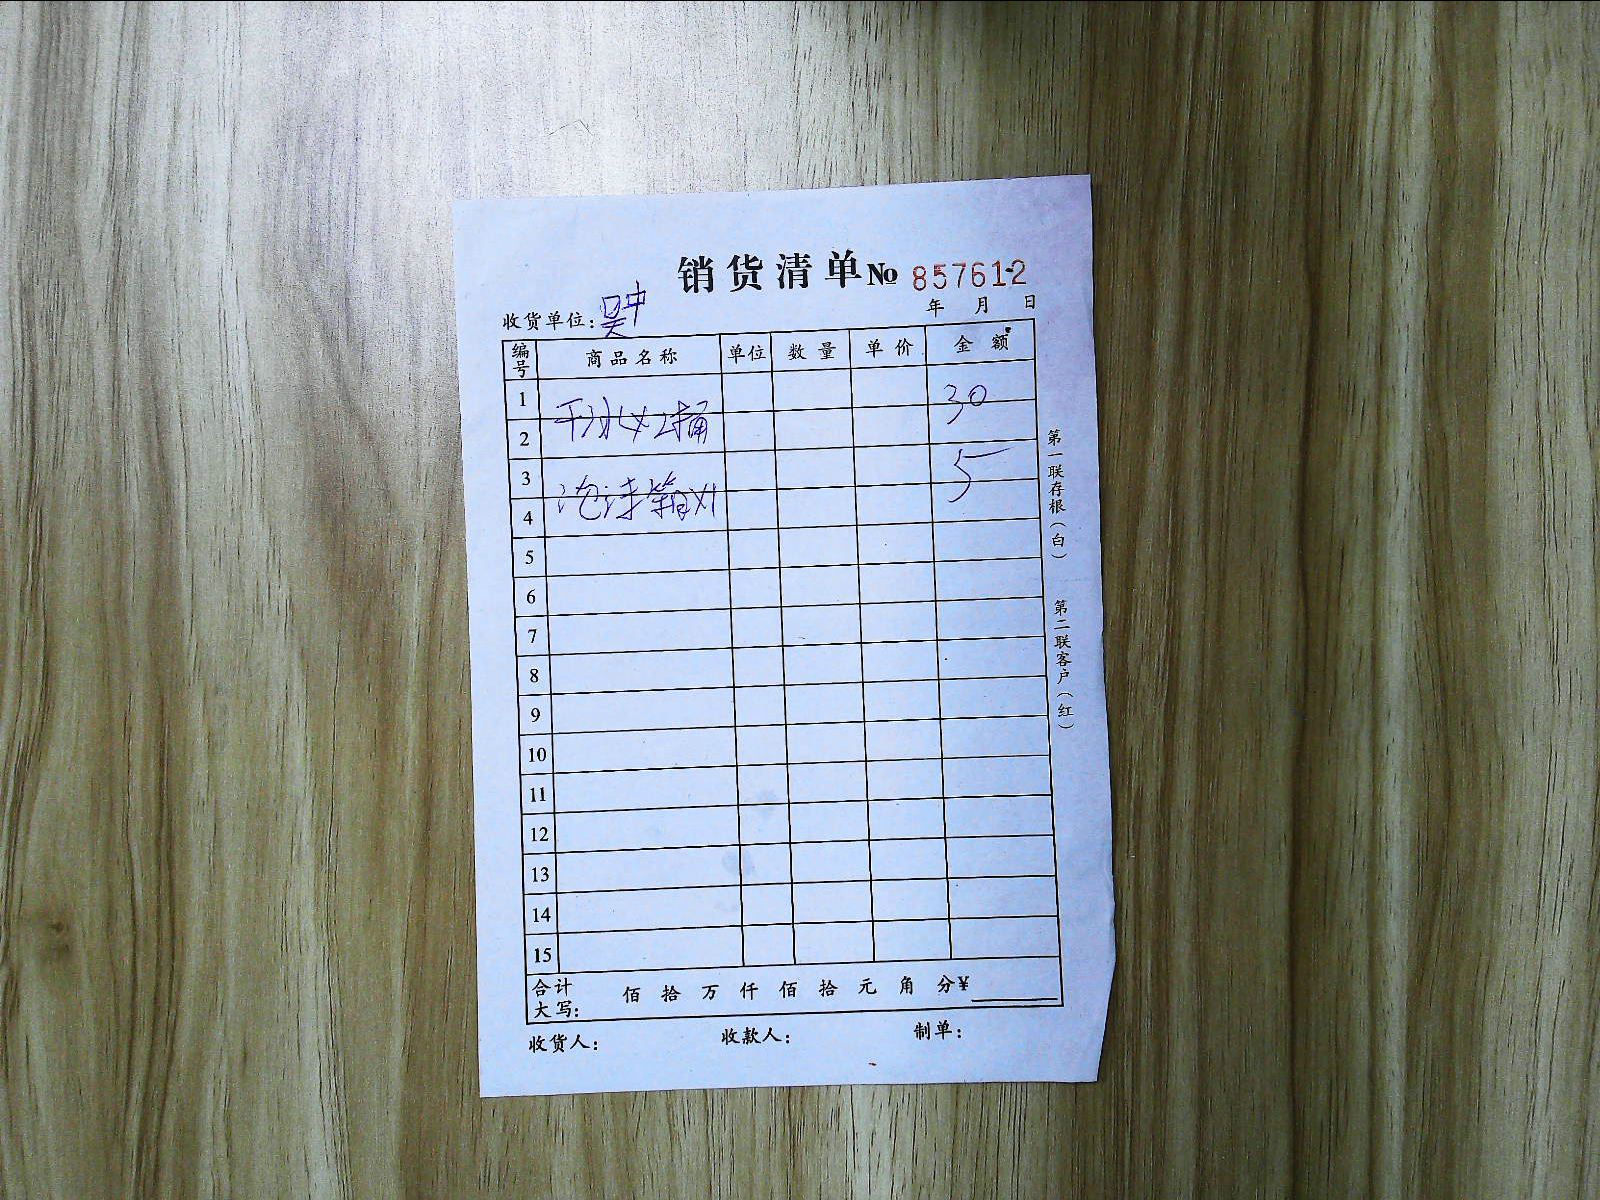 销货清单 No 857612
收货单位：吴中
年 月 日
编号 商品名称 单位 数量 单价 金额
1
干冰 桶 30
2
3
泡沫箱X1 5
4
5
6
7
8
9
10
11
12
13
14
15
合计
大写： 佰 拾 万 仟 佰 拾 元 角 分 ¥
收货人： 收款人： 制单：
第一联存根（白）
第二联客户（红）